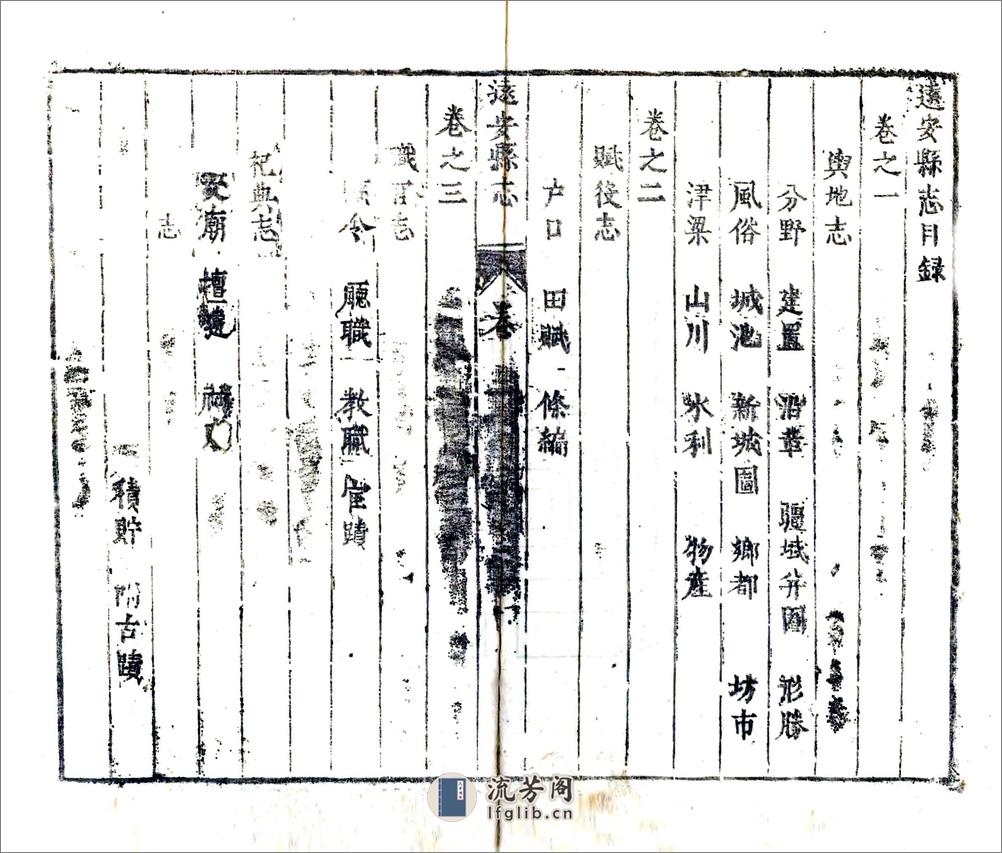 遠安縣志目録
卷之一
輿地志
分野 建置 沿革 疆域并圖 形勝
風俗 城池 新城圖 鄉都 坊市
津梁 山川 水利 物産
卷之二
賦役志
户口 田賦 條編
遠安縣志 卷
卷之三
職官志
令 廳職 教職 宦蹟
祀典志
文廟 壇
志
積貯 附古蹟
流芳阁
lfglib.cn